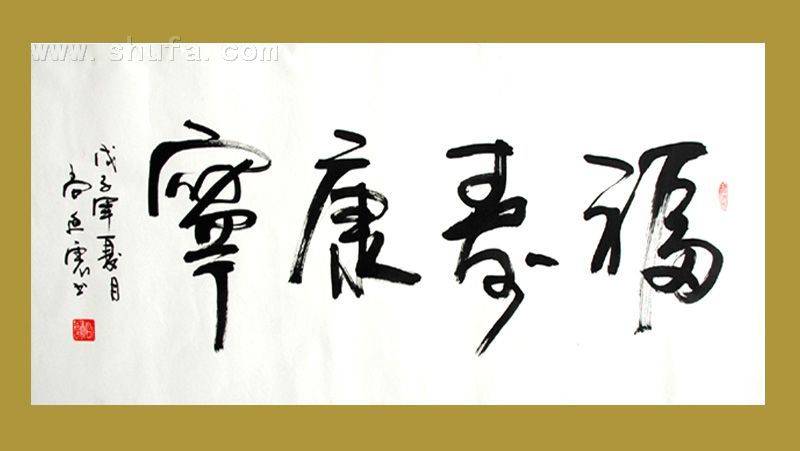 www.shufa.com
福寿康寧
戊子年夏月